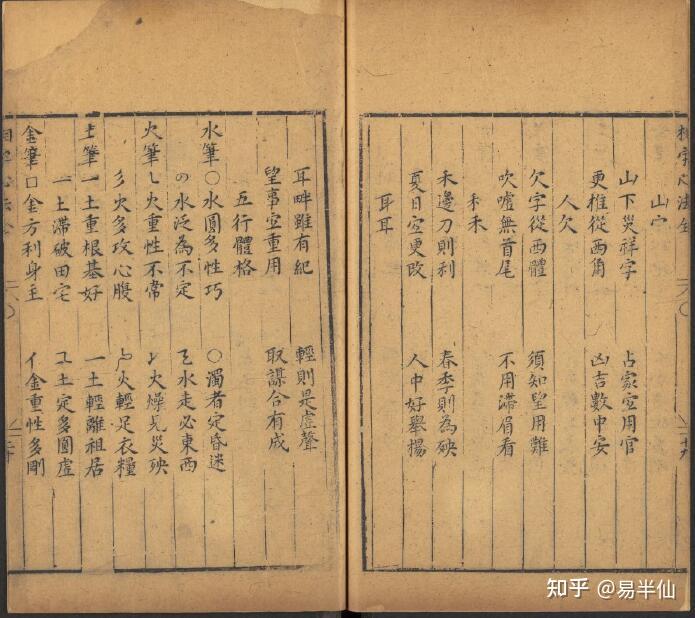 山宀
山下災祥字　占家宜用官
更推從西角　凶吉數中安
人欠
欠字從西體　須知望用難
吹噓無首尾　不用滯眉看
禾禾
禾邊刀則利　春季則為殃
夏日宜更改　人中好舉揚
耳耳
耳畔雖有紀　輕則是虛聲
望事宜重用　取謀合有成
五行體格
水筆○水圓多性巧　○濁者定昏迷
水泛為不定　水走必東西
火筆火重性不常　火燥見災殃
火多攻心腹　火輕足衣糧
土筆一土重根基好　一土輕離祖居
土滯破田宅　土定多圓虛
金筆口金方利身主　金重性多剛
知乎 @易半仙